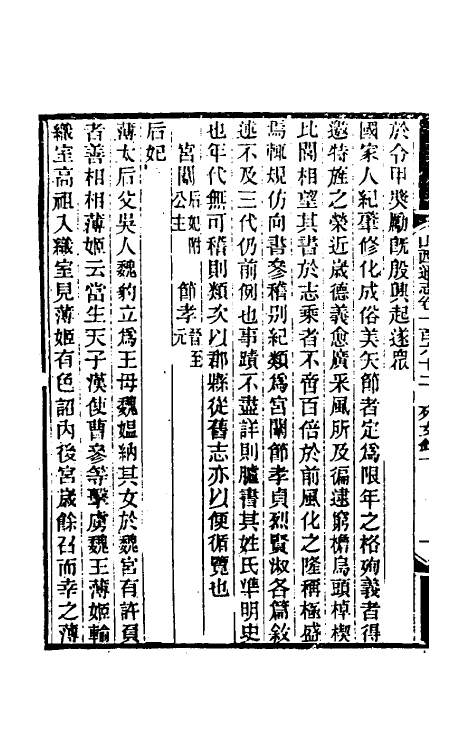 於令甲獎勵旣殷興起遂衆
國家人紀肇修化成俗美矢節者定爲限年之格殉義者得
邀特旌之榮近歲德義愈廣采風所及徧逮窮檐烏頭棹楔
比閭相望其書於志乘者不啻百倍於前風化之隆稱極盛
焉輒規仿向書參稽别紀類爲宮闈節孝貞烈賢淑各篇敘
述不及三代仍前例也事蹟不盡詳則臚書其姓氏準明史
也年代無可稽則類次以郡縣從舊志亦以便循覽也
宮闈后妃附公主 節孝晉至元
后妃
薄太后父吳人魏豹立爲王母魏媼納其女於魏宮有許負
者善相相薄姬云當生天子漢使曹參等擊虜魏王薄姬輸
織室高祖入織室見薄姬有色詔內後宮歲餘召而幸之薄
山西通志卷一百六十二 列女錄一 一